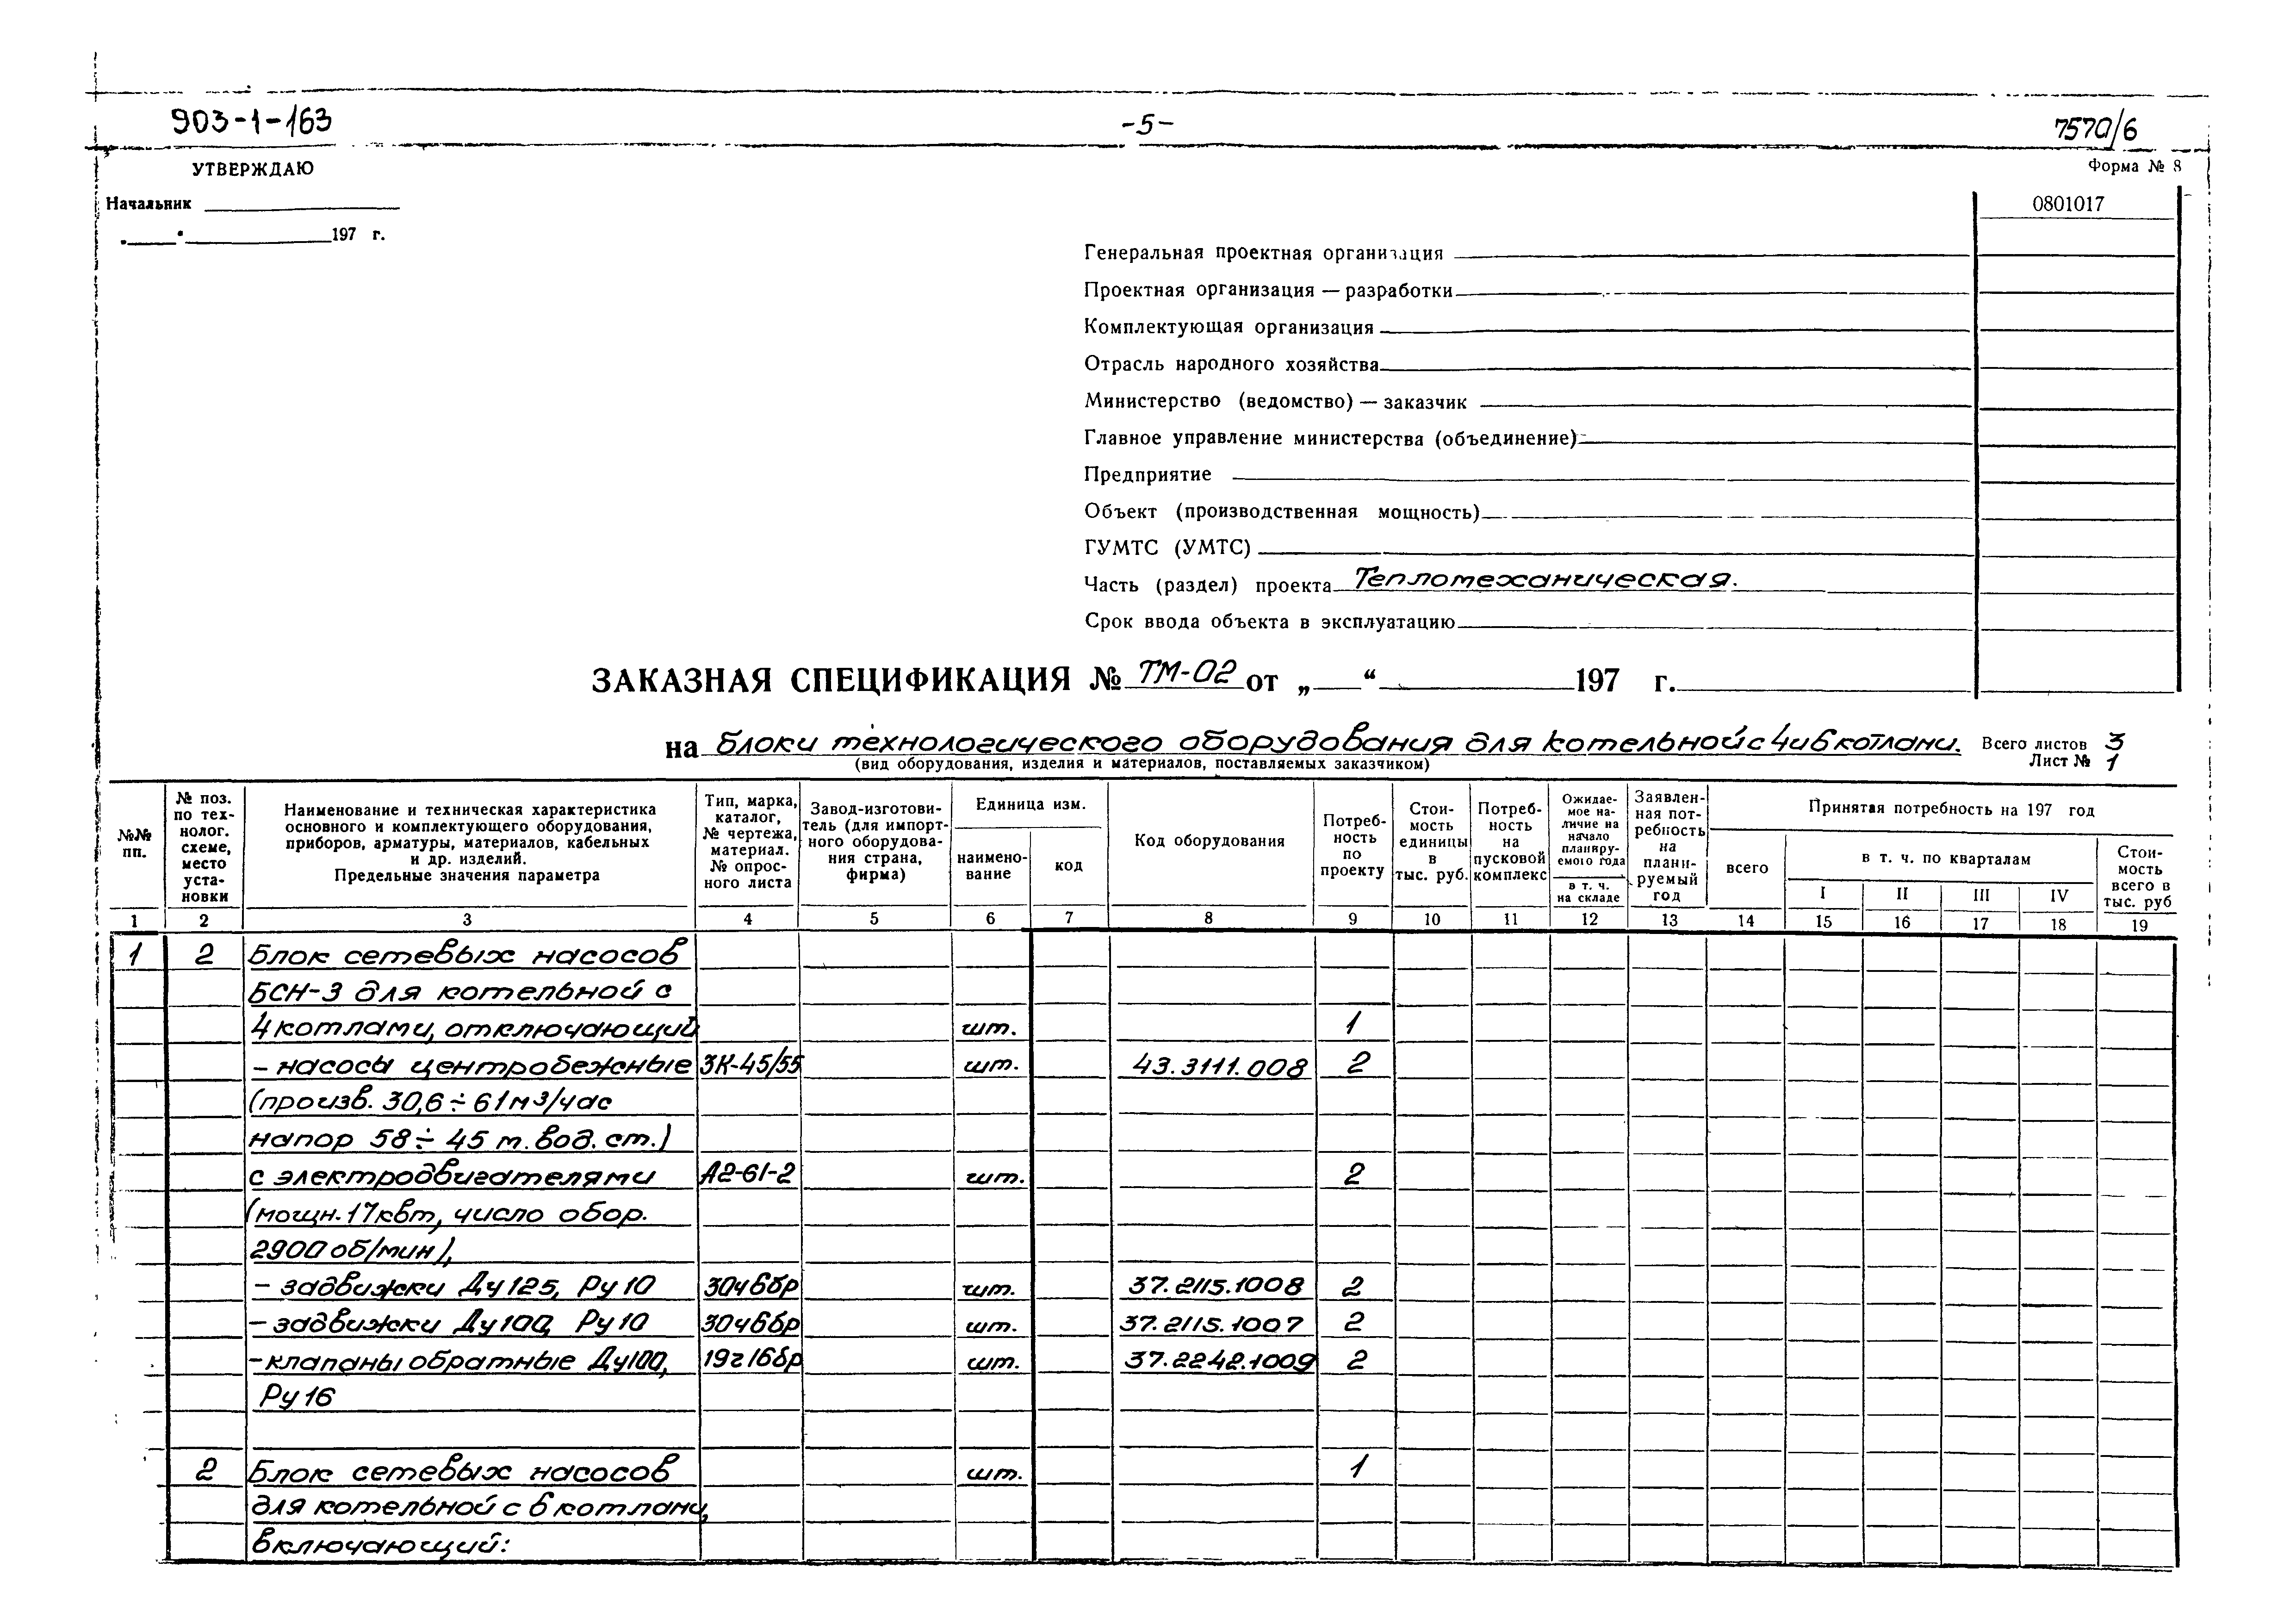 903-1-163
-5-
7570/6
УТВЕРЖДАЮ
Форма № 8
Начальник
0801017
„ " 197 г.
Генеральная проектная организация
Проектная организация — разработки
Комплектующая организация
Отрасль народного хозяйства
Министерство (ведомство) — заказчик
Главное управление министерства (объединение)
Предприятие
Объект (производственная мощность)
ГУМТС (УМТС)
Часть (раздел) проекта Тепломеханическая.
Срок ввода объекта в эксплуатацию
ЗАКАЗНАЯ СПЕЦИФИКАЦИЯ № ТМ-02 от „ “ 197 г.
на блоки технологического оборудования для котельной с 4 и 6 котлами. Всего листов 3
(вид оборудования, изделия и материалов, поставляемых заказчиком) Лист № 1
№№ пп.
№ поз. по тех- нолог. схеме, место уста- новки
Наименование и техническая характеристика
основного и комплектующего оборудования,
приборов, арматуры, материалов, кабельных
и др. изделий.
Предельные значения параметра
Тип, марка, каталог, № чертежа, материал. № опрос- ного листа
Завод-изготови- тель (для импорт- ного оборудова- ния страна, фирма)
Единица изм.
наимено- вание
код
Код оборудования
Потреб- ность по проекту
Стои- мость единицы в тыс. руб.
Потреб- ность на пусковой комплекс
Ожидае- мое на- личие на начало планиру- емого года
в т. ч. на складе
Заявлен- ная пот- ребность на плани- руемый год
Принятая потребность на 197 год
всего
в т. ч. по кварталам
I II III IV
Стои- мость всего в тыс. руб
1 2 3 4 5 6 7 8 9 10 11 12 13 14 15 16 17 18 19
1 2 Блок сетевых насосов
БСН-3 для котельной с
4 котлами, отключающий шт. 1
- насосы центробежные 3К-45/55 шт. 43.3111.008 2
(произв. 30,6÷61м³/час
напор 58÷45 м. вод. ст.)
с электродвигателями А2-61-2 шт. 2
(мощн. 17квт, число обор.
2900 об/мин),
- задвижки Ду125, Ру10 30ч6бр шт. 37.2115.1008 2
- задвижки Ду100, Ру10 30ч6бр шт. 37.2115.1007 2
- клапаны обратные Ду100, 19г16бр шт. 37.2242.1009 2
Ру16
2 Блок сетевых насосов шт. 1
для котельной с 6 котлами,
включающий: